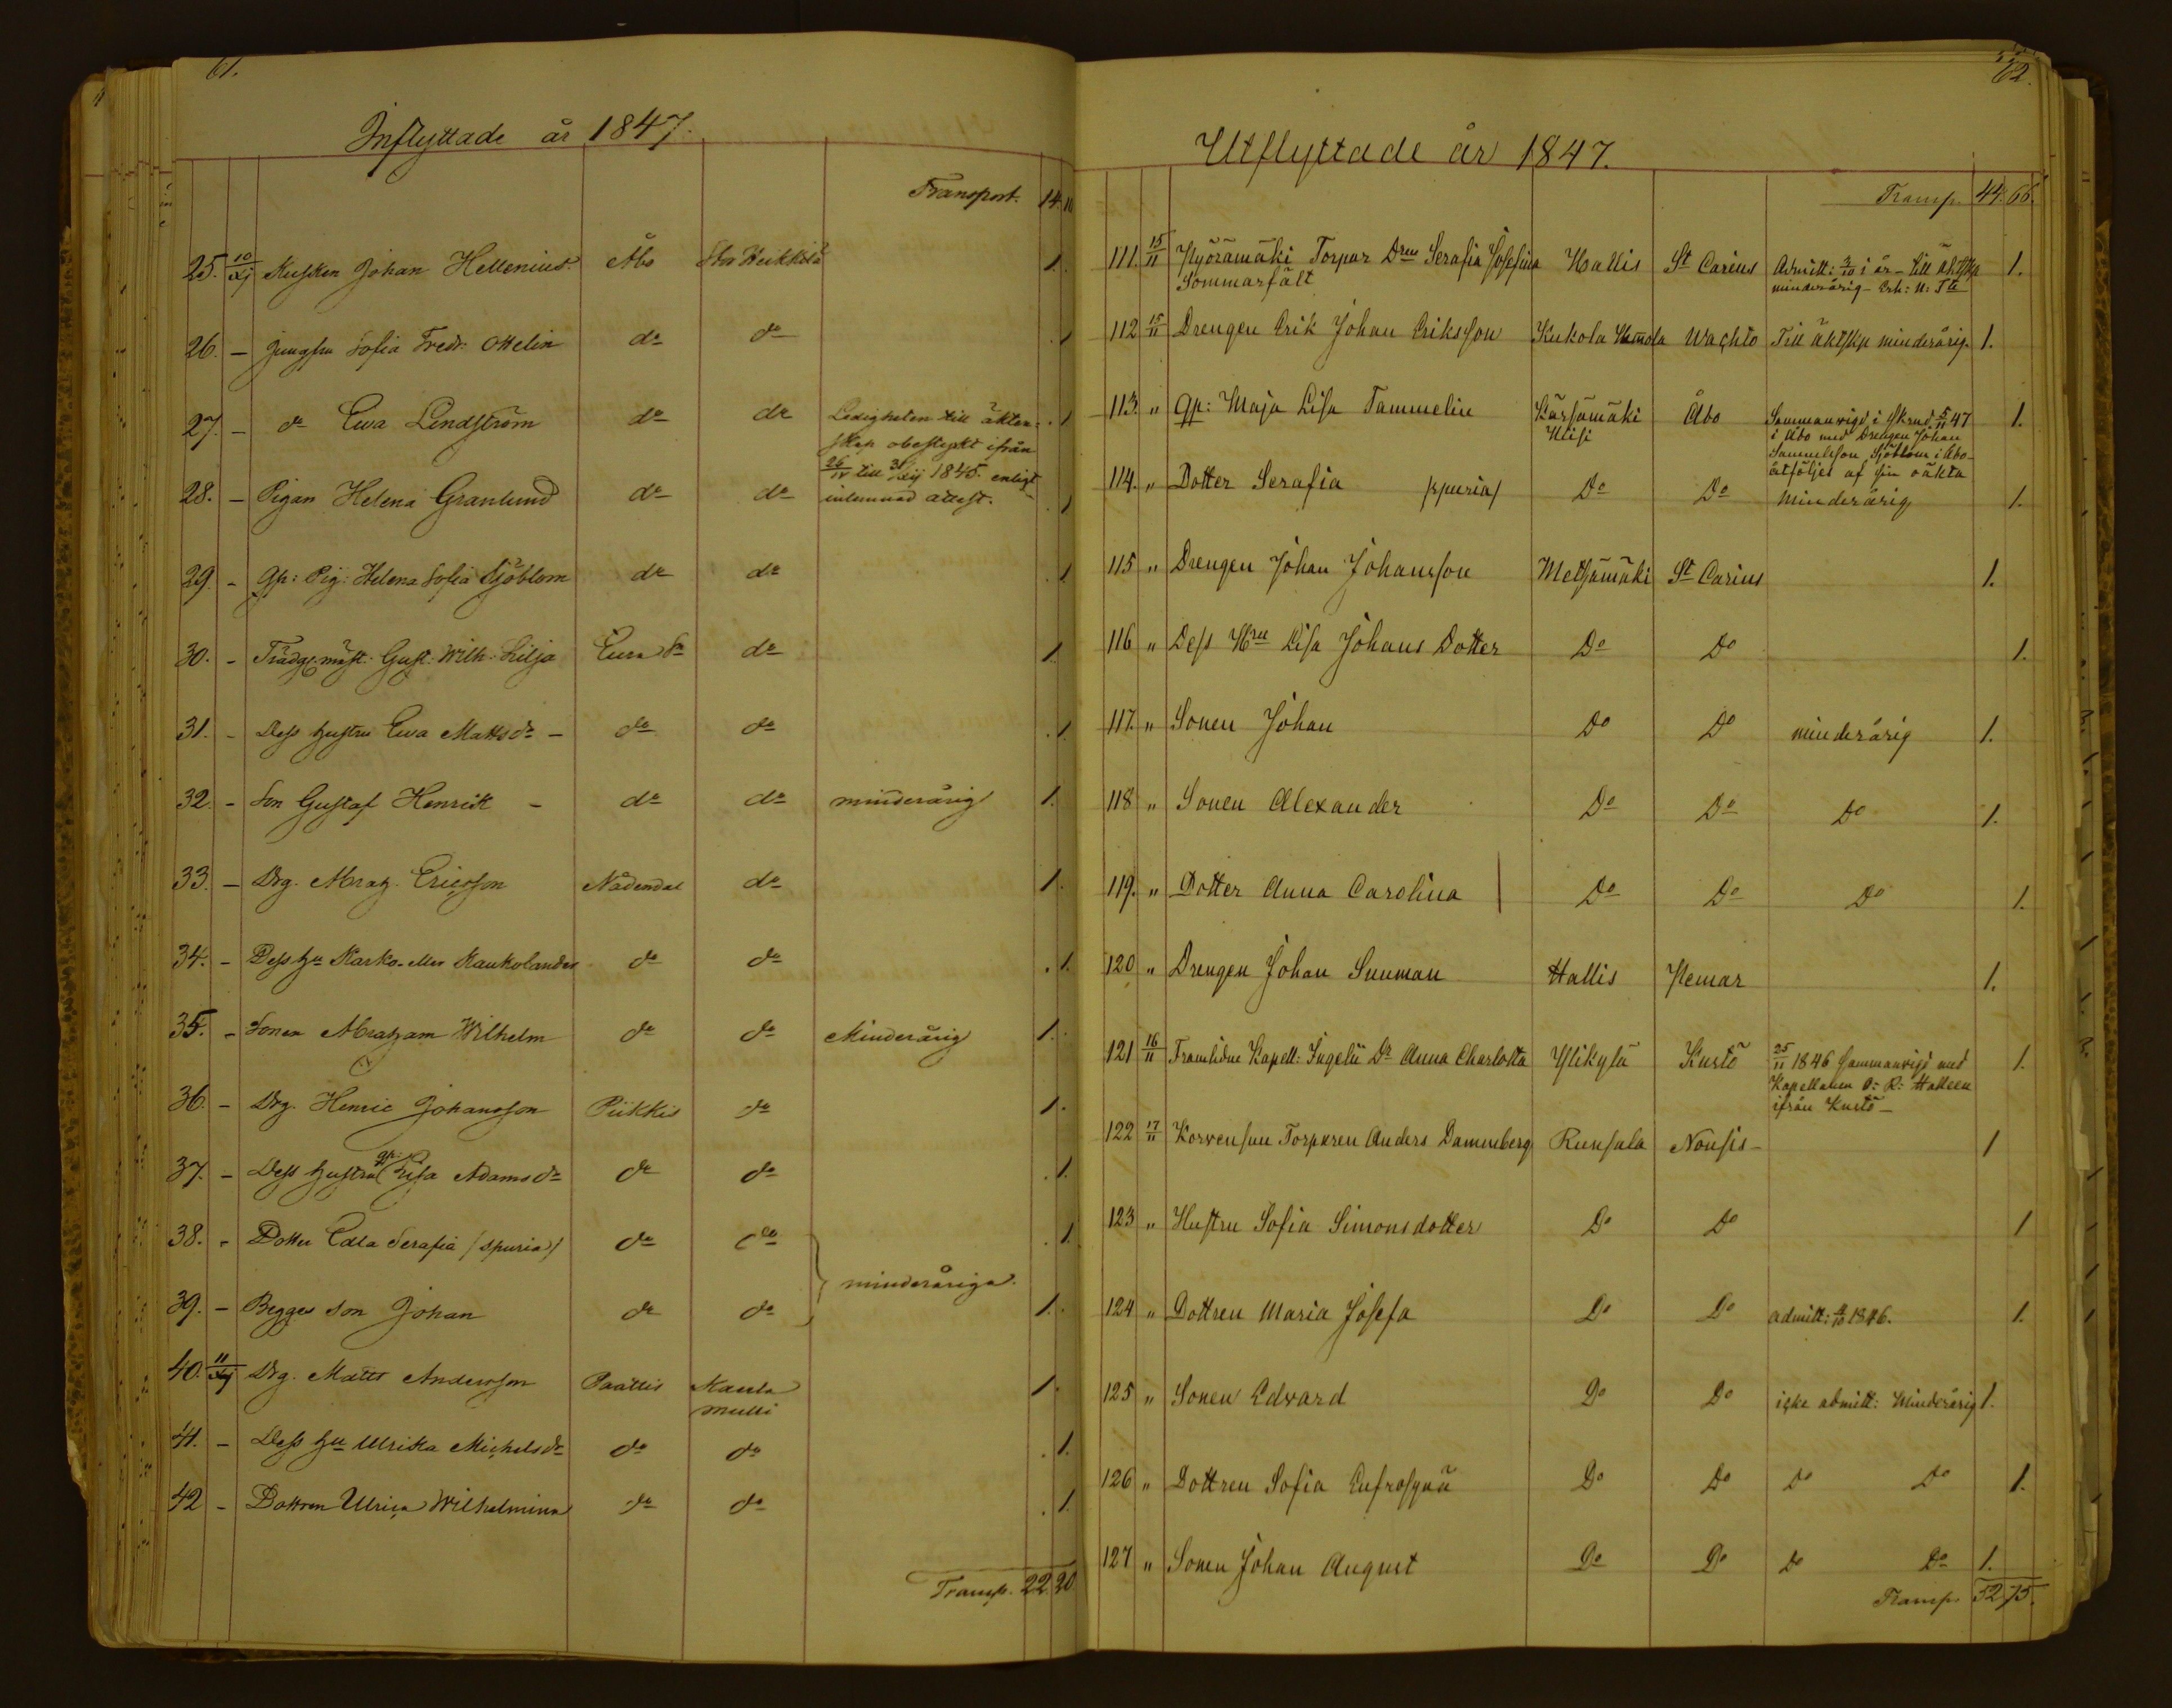 61.
Inflyttade år 1847.
Transport. 14. 10
25. 10/XI Kusken Johan Hellenius Åbo Stor Heikkilä 1.
26. — Jungfru Sofia Fredr: Ottelin do do 1
27. — do Ewa Lindström do do Ledigheten till äkten- 1
skap obestyrkt ifrån
28. — Pigan Helena Granlund do do till 1845. enligt 1
inlemnad attest.
29. — Gp: Pig: Helena Sofia Sjöblom do do 1
30. — Trädg. mäst. Gust. Wilh. Lilja Eura do 1.
31. — Dess hustru Ewa Mattsdr — do do 1.
32. — Son Gustaf Henrik — do do minderårig 1.
33. — Drg. Abrah. Ericsson Nådendal do 1.
34. — Dess hu Kaukolander do do 1.
35. — Sonen Abraham Wilhelm do do Minderårig 1.
36. — Drg. Henric Johansson Piikkis do 1.
37. — Dess hustru gp: Lisa Adamsdr do do 1.
38. — Dotter Edla Serafia /spuria/ do do 1.
minderåriga.
39. — Begges son Johan do do 1.
40. 11/XI Drg. Matts Andersson Paattis Kaula 1.
mulli
41. — Dess hu Ulrika Michelsdr do do 1.
42 — Dottren Ulrica Wilhelmina do do 1.
Transp. 22 20
62.
Utflyttade år 1847.
Transp. 44. 66.
111. 15/11 Pyörämäki Torpar Dren Serafia Josefina Hallis St Carins Admitt: 3/10 i år — till äktskp 1.
Sommarfält minderårig — Erh: N: Tte
112 15/11 Drengen Erik Johan Eriksson Kukola Wachto Till äktskp minderårig. 1.
113. " Gp: Maja Lisa Tammelin Kärsämäki Åbo Sammanvigd i Skrud 5/11 47 1.
Ylisi i Åbo med Drengen Johan
Samuelsson Sjöblom i Åbo —
åtföljes af sin oäkta
114. " Dotter Serafia /spuria/ Do Do Minderårig 1.
115 " Drengen Johan Johansson Metsämäki St Carins 1.
116 " Dess Hru Lisa Johans Dotter Do Do 1.
117. " Sonen Johan Do Do minderårig 1.
118 " Sonen Alexander Do Do Do 1.
119. " Dotter Anna Carolina Do Do Do 1.
120 " Drengen Johan Sunman Hallis Pemar 1.
121 16/11 Framlidne Kapell: Ingelii Dr Anna Charlotta Ylikylä Kustö 25/11 1846 sammanvigd med 1.
Kapellanen O: R: Halleen
ifrån Kustö —
122 17/11 Korvensuu Torparen Anders Dammberg Runsala Nousis — 1
123 " Hustru Sofia Simonsdotter Do Do 1
124 " Dottren Maria Josefa Do Do admitt: 4/10 1846. 1.
125 " Sonen Edvard Do Do icke admitt: Minderårig 1.
126 " Dottren Sofia Eufrosyna Do Do Do Do 1.
127 " Sonen Johan August Do Do Do Do 1.
Transp. 52 75.